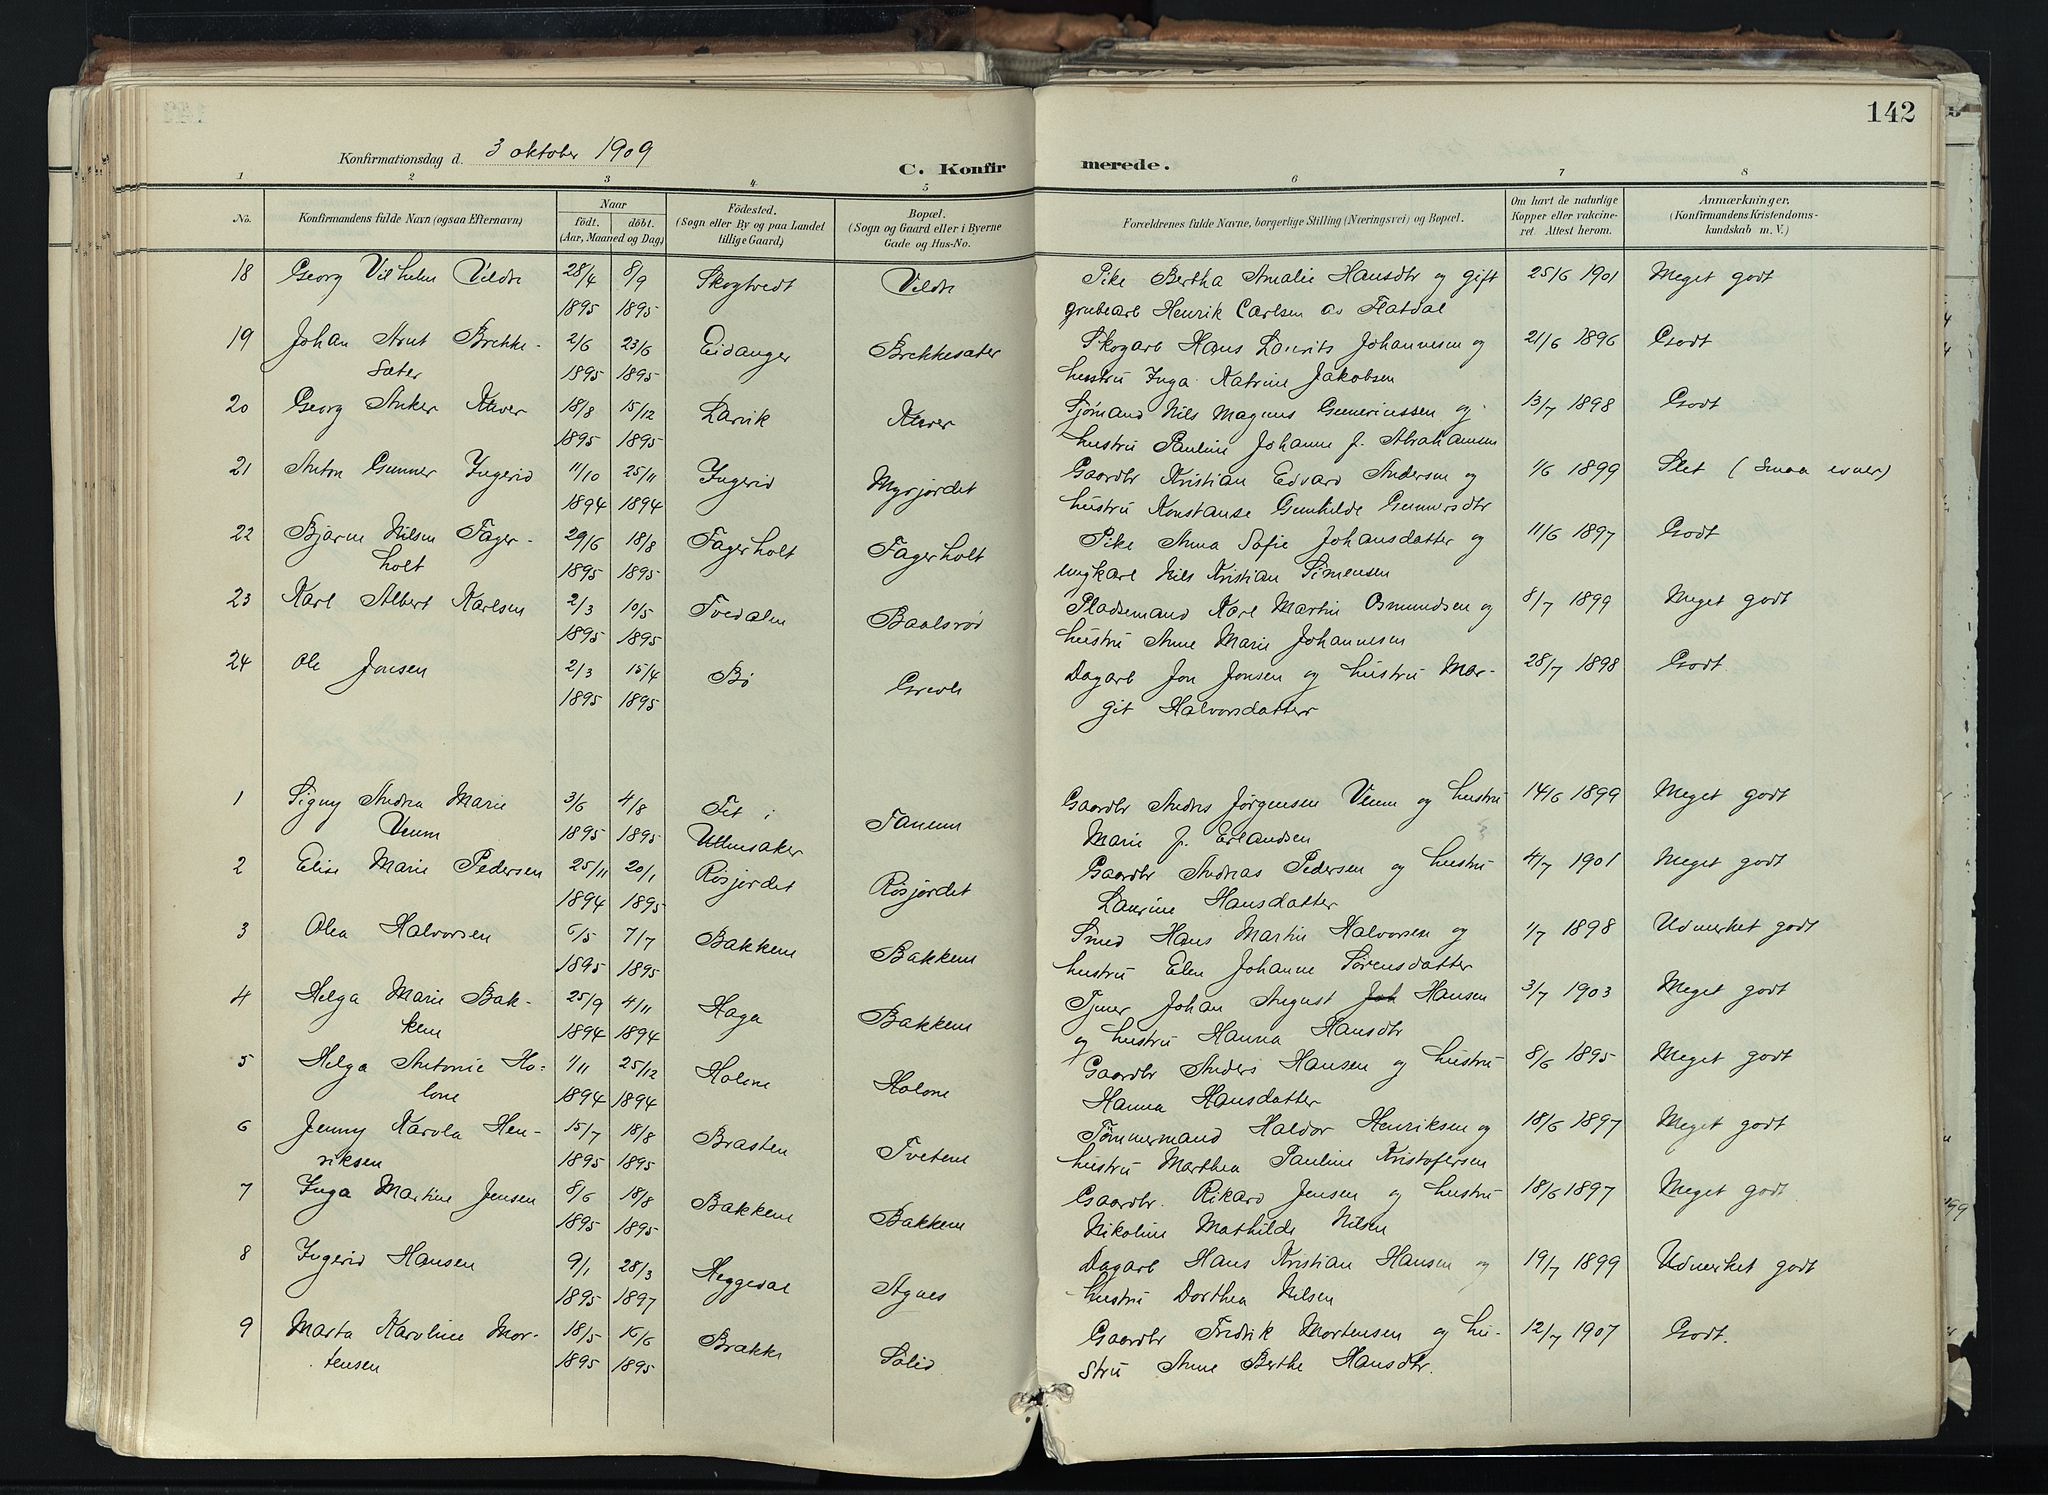 142
Konfirmationsdag d. 3 oktober 1909
C. Konfirmerede.
1 2 3 4 5 6 7 8
No. Konfirmandens fulde Navn (ogsaa Efternavn) Naar födt. döbt. (Aar, Maaned og Dag) Födested. (Sogn eller By og paa Landet tillige Gaard) Bopæl. (Sogn og Gaard eller i Byerne Gade og Hus-No. Forældrenes fulde Navne, borgerlige Stilling (Næringsvei) og Bopæl. Om havt de naturlige Kopper eller vakcineret. Attest herom. Anmærkninger, (Konfirmandens Kristendomskundskab m. V.)
18 Georg Vilhelm Vildre 28/4 8/9 Skogtvedt Vildre Pike Bertha Amalie Hansdtr og gift 25/6 1901 Meget godt
1895 1895 grubearb Henrik Carlsen av Flatdal
19 Johan Arnt Brekke- 2/6 23/6 Eidanger Brekkesæter Skogarb Hans Laurits Johannesen og 21/6 1896 Godt
Sæter 1895 1895 hustru Inga Katrine Jakobsen
20 Georg Anker Klever 18/8 15/12 Larvik Klever Sjømand Nils Magnus Guneriussen og 13/7 1898 Godt
1895 1895 hustru Pauline Johanne f. Abrahamsen
21 Anton Gunner Ingerid 11/10 25/11 Ingerid Myrjordet Gaardbr Kristian Edvard Andersen og 1/6 1899 Slet (Smaa evner)
1894 1894 hustru Konstanse Gunhilde Gunnersdtr
22 Bjarne Nilsen Fager- 29/6 18/8 Fagerholt Fagerholt Pike Anna Sofie Johansdatter og 11/6 1897 Godt
holt 1895 1895 ungkarl Nils Kristian Simensen
23 Karl Albert Karlsen 2/3 10/5 Tvedalen Baalsrød Pladsemand Karl Martin Osmundsen og 8/7 1899 Meget godt
1895 1895 hustru Anne Marie Johannesen
24 Ole Jonsen 2/3 15/4 Bø Grevle Dagarb Jon Jonsen og hustru Mar- 28/7 1898 Godt
1895 1895 git Halvorsdatter
1 Signy Andrea Marie 3/6 4/8 Fet i Tanum Gaardbr Andrs Jørgensen Venm og hustru 14/6 1899 Meget godt
Venm 1895 1895 Ullensaker Marie f. Erlandsen
2 Elise Marie Pedersen 25/11 20/1 Røsjordet Røsjordet Gaardbr Andreas Pedersen og hustru 4/7 1901 Meget godt
1894 1895 Laurine Hansdatter
3 Olea Halvorsen 6/5 7/7 Bakkene Bakkene Smed Hans Martin Halvorsen og 1/7 1898 Udmerket godt
1895 1895 hustru Elen Johanne Sørensdatter
4 Helga Marie Bak- 25/9 4/11 Haga Bakkene Tjener Johan August Joh Hansen 3/7 1903 Meget godt
kene 1894 1894 og hustru Hanna Hansdtr
5 Helga Antonie Ho- 1/11 25/12 Holone Holone Gaardbr Anders Hansen og hustru 8/6 1895 Meget godt
lone 1894 1894 Hanna Hansdatter
6 Jenny Karola Hen- 15/7 18/8 Brasten Tvetene Tømmermand Haldor Henriksen og 18/6 1897 Meget godt
riksen 1895 1895 hustru Marthea Pauline Kristofersen
7 Inga Martine Jensen 8/6 18/8 Bakkene Bakkene Gaardbr. Rikard Jensen og hustru 18/6 1897 Meget godt
1895 1895 Nikoline Mathilde Nilsen
8 Ingerid Hansen 9/1 28/3 Heggedal Agnes Dagarb Hans Kristian Hansen og 19/7 1899 Udmerket godt
1895 1897 hustru Dorthea Nilsen
9 Marta Karoline Mor- 18/5 16/6 Brække Sølid Gaardbr Fredrik Mortensen og hu- 12/7 1907 Godt.
tensen 1895 1895 stru Anne Berthe Hansdtr.